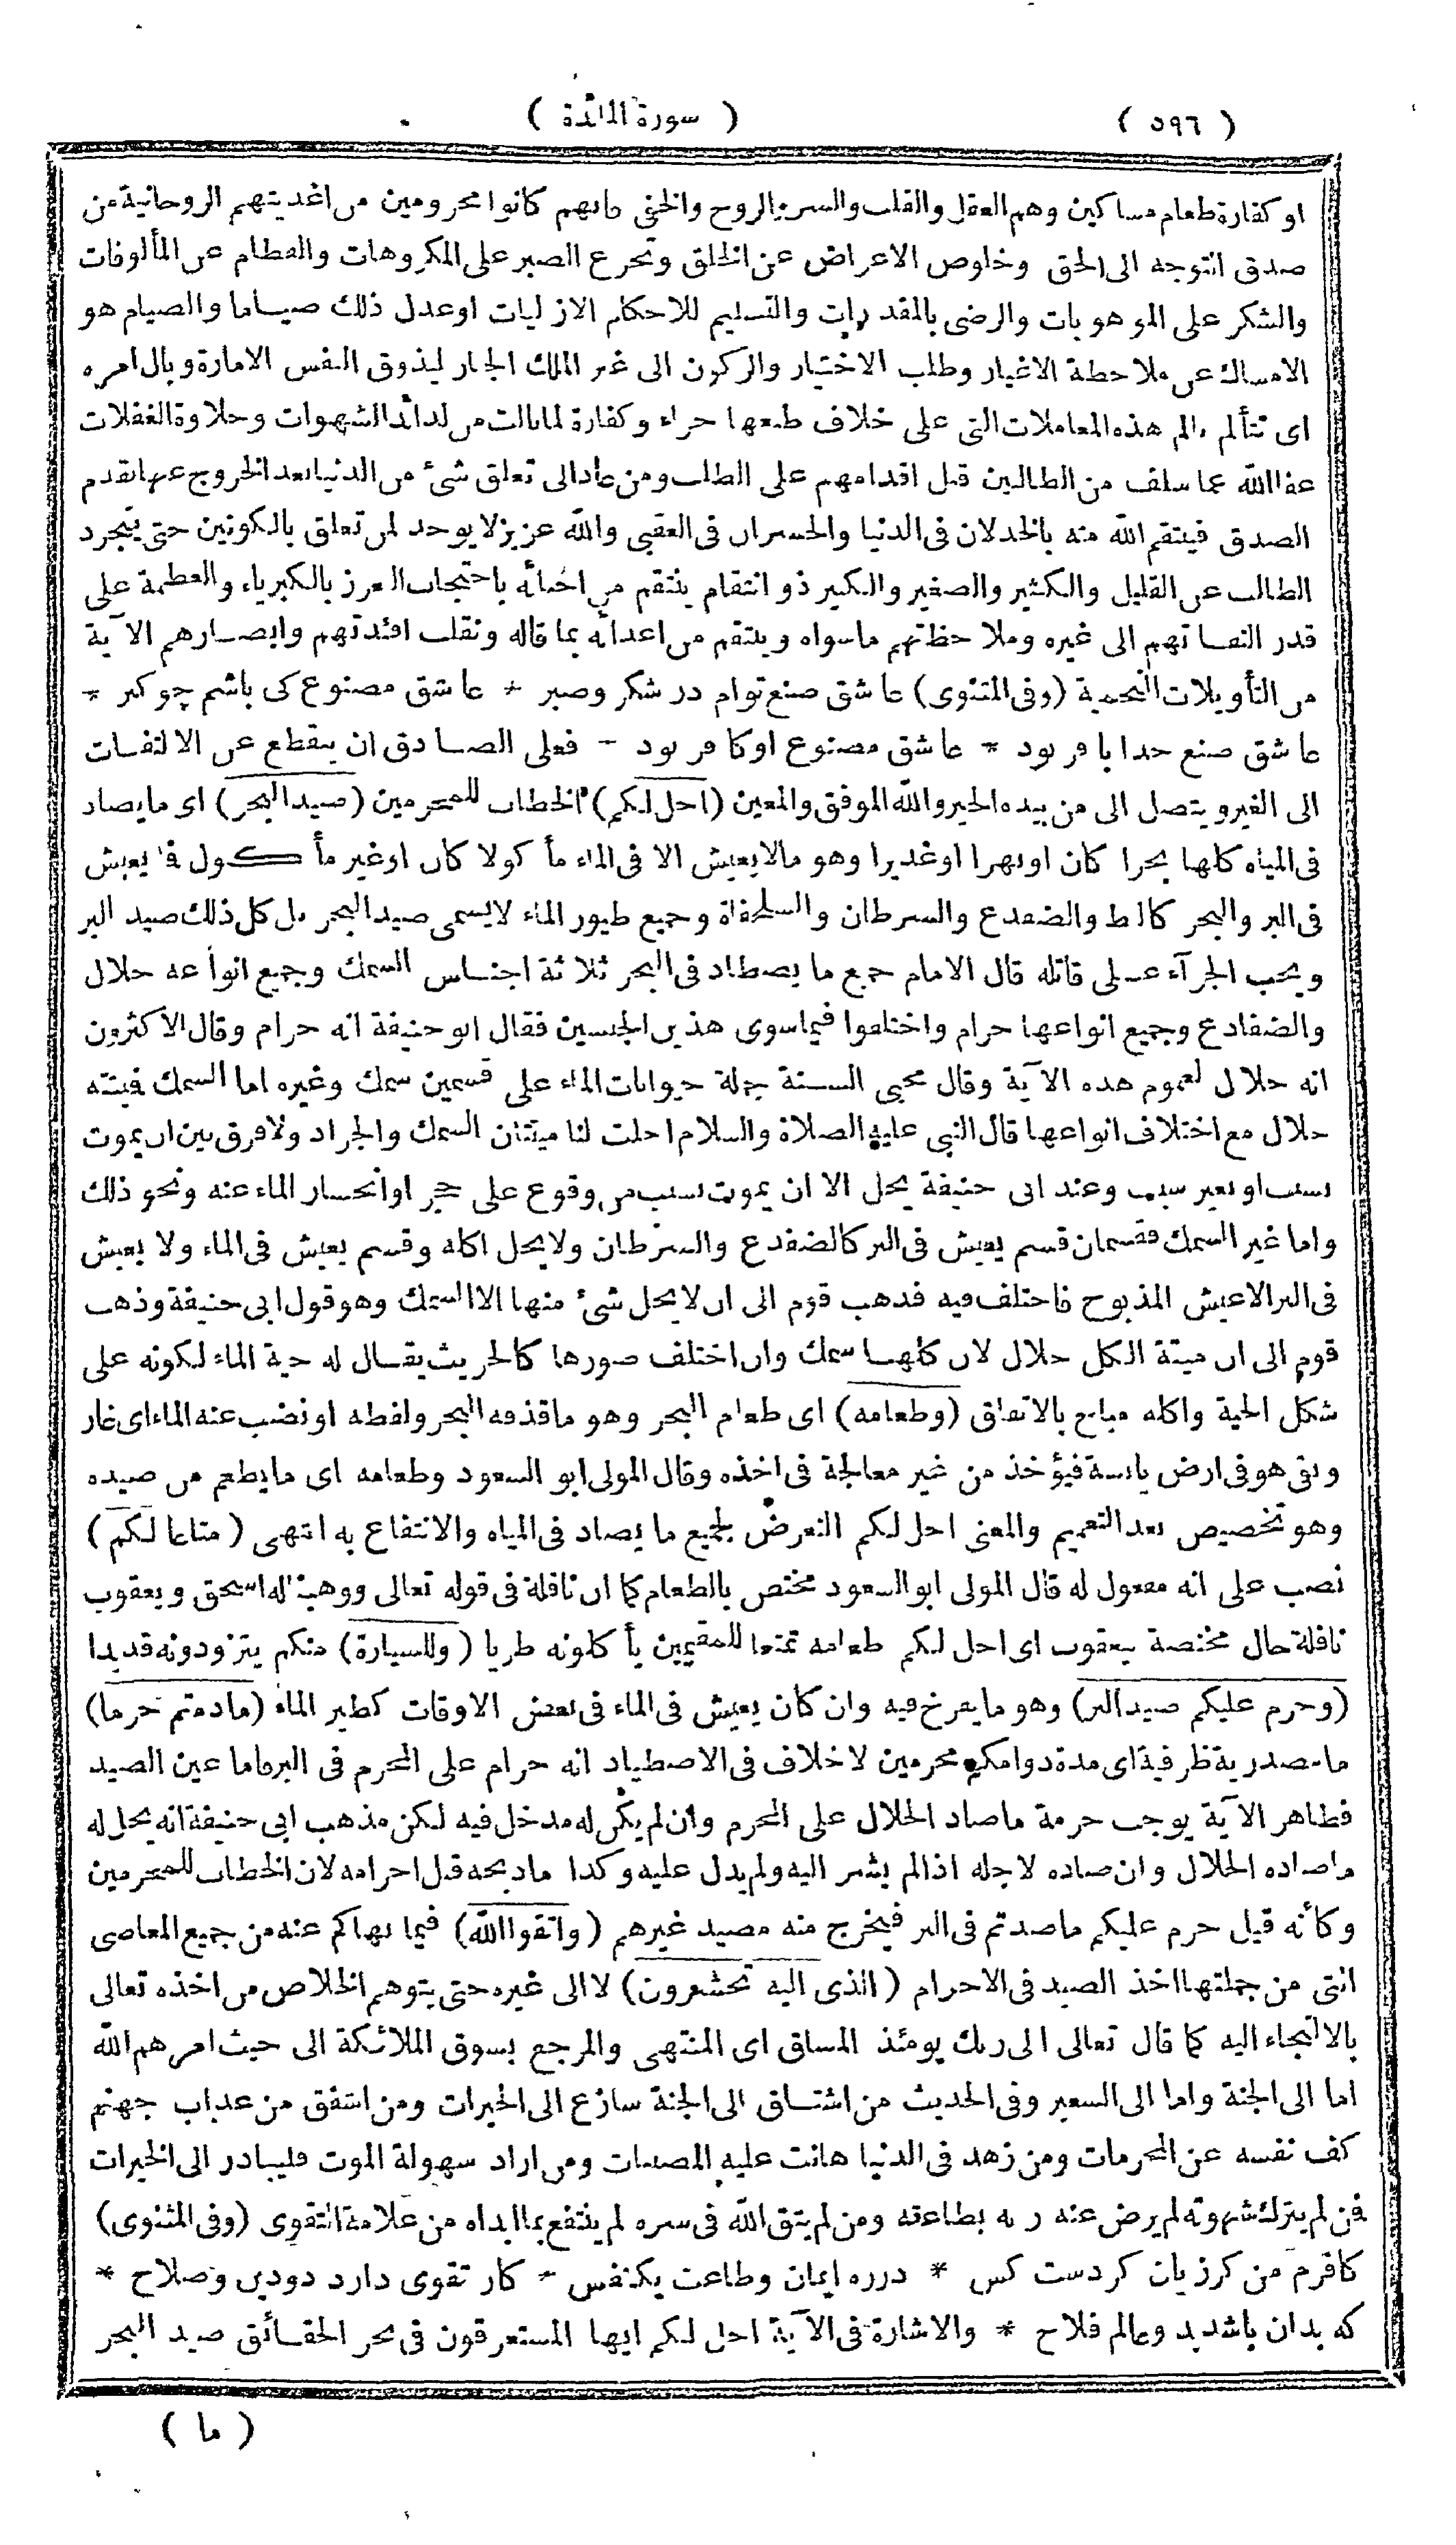 ( ٥٩٦ ) ( سورة المائدة )
او كفارة طعام مساكين وهم العقل والقلب والسر والروح والخفى فانهم كانوا محرومين من اغذيتهم الروحانية من
صدق التوجه الى الحق وخلوص الاعراض عن الخلق وتجرع الصبر على المكروهات والفطام عن المألوفات
والشكر على الموهوبات والرضى بالمقدرات والتسليم للاحكام الازليات اوعدل ذلك صياما والصيام هو
الامساك عن ملاحظة الاغيار وطلب الاختيار والركون الى غير الملك الجبار ليذوق النفس الامارة وبال امره
اى تتألم بالم هذه المعاملات التى على خلاف طبعها جزاء وكفارة لمانالت من لذائذ الشهوات وحلاوة الغفلات
عفا الله عما سلف من الطالبين قبل اقدامهم على الطلب ومن عاد الى تعلق شئ من الدنيا بعد الخروج عنها بقدم
الصدق فينتقم الله منه بالخذلان فى الدنيا والخسران فى العقبى والله عزيز لا يوجد لمن تعلق بالكونين حتى يتجرد
الطالب عن القليل والكثير والصغير والكبير ذو انتقام ينتقم من احبائه باحتجاب العزز بالكبرياء والعظمة على
قدر التفاتهم الى غيره وملاحظتهم ماسواه وينتقم من اعدائه بما قاله ونقلب افئدتهم وابصارهم الآية
من التأويلات النجمية (وفى المثنوى) عاشق صنع توام در شكر وصبر * عاشق مصنوع كى باشم چو كبر *
عاشق صنع خدا با فر بود * عاشق مصنوع او كافر بود - فعلى الصادق ان ينقطع عن الالتفات
الى الغير ويتصل الى من بيده الخير والله الموفق والمعين (احل لكم) الخطاب للمحرمين (صيد البحر) اى ما يصاد
فى المياه كلها بحرا كان اونهرا اوغديرا وهو مالا يعيش الا فى الماء مأكولا كان اوغير مأكول فما يعيش
فى البر والبحر كالبط والضفدع والسرطان والسلحفاة وجميع طيور الماء لايسمى صيد البحر بل كل ذلك صيد البر
ويجب الجزآء على قاتله قال الامام جميع ما يصطاد فى البحر ثلاثة اجناس السمك وجميع انواعه حلال
والضفادع وجميع انواعها حرام واختلفوا فيماسوى هذين الجنسين فقال ابو حنيفة انه حرام وقال الاكثرون
انه حلال لعموم هذه الآية وقال محيى السنة جملة حيوانات الماء على قسمين سمك وغيره اما السمك فميتته
حلال مع اختلاف انواعها قال النبى عليه الصلاة والسلام احلت لنا ميتتان السمك والجراد ولافرق بين ان يموت
بسبب او بغير سبب وعند ابى حنيفة يحل الا ان يموت بسبب من وقوع على حجر اوانحسار الماء عنه ونحو ذلك
واما غير السمك فقسمان قسم يعيش فى البر كالضفدع والسرطان ولايحل اكله وقسم يعيش فى الماء ولا يعيش
فى البر الاعيش المذبوح فاختلف فيه فذهب قوم الى ان لايحل شئ منها الا السمك وهو قول ابى حنيفة وذهب
قوم الى ان ميتة الكل حلال لان كلها سمك وان اختلف صورها كالجريث يقال له حية الماء لكونه على
شكل الحية واكله مباح بالاتفاق (وطعامه) اى طعام البحر وهو ماقذفه البحر ولفظه او نضب عنه الماء اى غار
وبقى هو فى ارض يابسة فيؤخذ من غير معالجة فى اخذه وقال المولى ابو السعود وطعامه اى مايطعم من صيده
وهو تخصيص بعد التعميم والمعنى احل لكم التعرض لجميع ما يصاد فى المياه والانتفاع به انتهى (متاعا لكم)
نصب على انه مفعول له قال المولى ابو السعود مختص بالطعام كما ان نافلة فى قوله تعالى ووهبنا له اسحق ويعقوب
نافلة حال مختصة بيعقوب اى احل لكم طعامه تمتعا للمقيمين يأكلونه طريا (وللسيارة) منكم يتزودونه قديدا
(وحرم عليكم صيد البر) وهو ما يفرخ فيه وان كان يعيش فى الماء فى بعض الاوقات كطير الماء (مادمتم حرما)
ما مصدرية ظرفية اى مدة دوامكم محرمين لاخلاف فى الاصطياد انه حرام على المحرم فى البر فاما عين الصيد
فظاهر الآية يوجب حرمة ماصاد الحلال على المحرم وان لم يكن له مدخل فيه لكن مذهب ابى حنيفة انه يحل له
ماصاده الحلال وان صاده لاجله اذالم يشر اليه ولم يدل عليه وكذا ماذبحه قبل احرامه لان الخطاب للمحرمين
وكأنه قيل حرم عليكم ماصدتم فى البر فيخرج منه مصيد غيرهم (واتقوا الله) فيما نهاكم عنه من جميع المعاصى
التى من جملتها اخذ الصيد فى الاحرام (الذى اليه تحشرون) لا الى غيره حتى يتوهم الخلاص من اخذه تعالى
بالالتجاء اليه كما قال تعالى الى ربك يومئذ المساق اى المنتهى والمرجع بسوق الملائكة الى حيث امرهم الله
اما الى الجنة واما الى السعير وفى الحديث من اشتاق الى الجنة سارع الى الخيرات ومن اشفق من عذاب جهنم
كف نفسه عن المحرمات ومن زهد فى الدنيا هانت عليه المصيبات ومن اراد سهولة الموت فليبادر الى الخيرات
فمن لم يترك شهوته لم يرض عنه ربه بطاعته ومن لم يتق الله فى سره لم ينتفع بما ابداه من علامة التقوى (وفى المثنوى)
كافرم من كرزيان كردست كس * درره ايمان وطاعت يكنفس - كار تقوى دارد ودين وصلاح *
كه بدان باشد بدو عالم فلاح * والاشارة فى الآية احل لكم ايها المستغرقون فى بحر الحقائق صيد البحر
( ما )